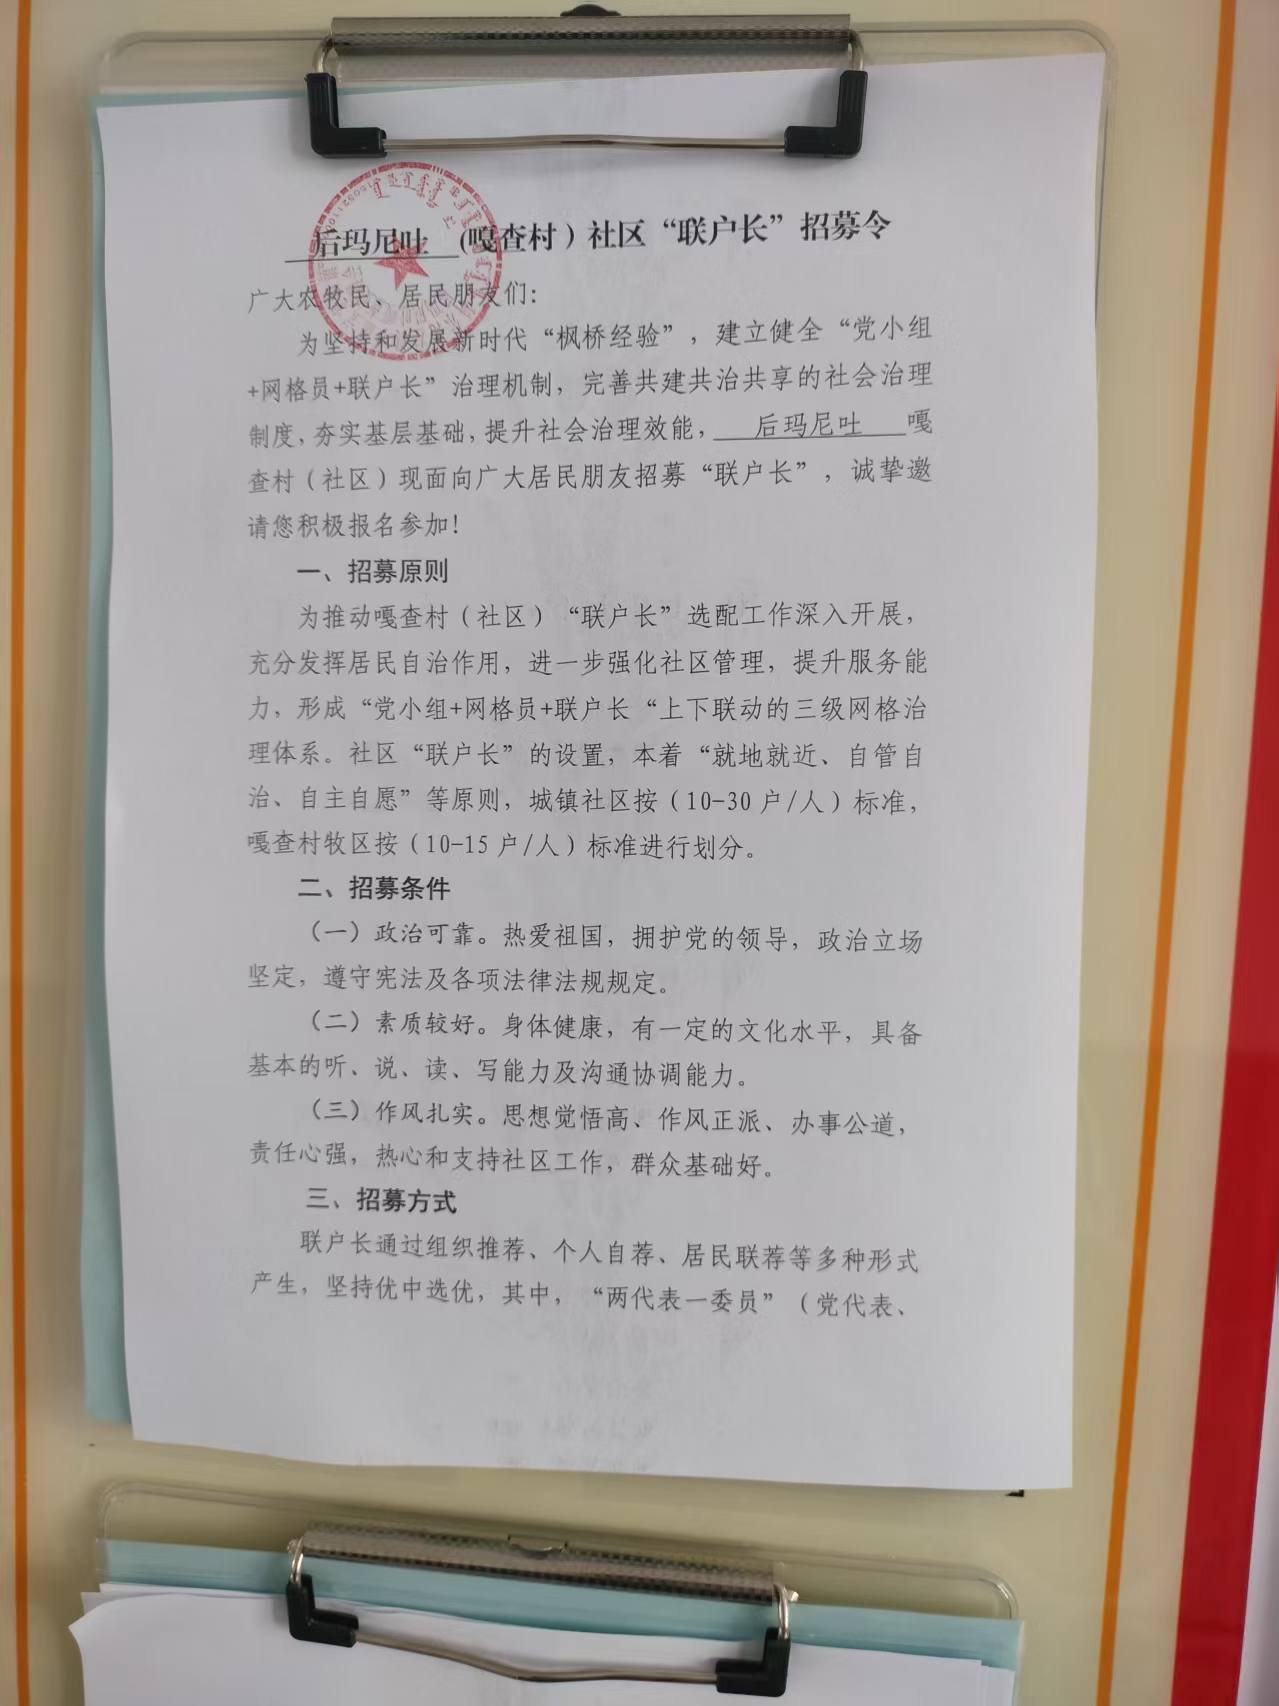 后玛尼吐 (嘎查村）社区“联户长”招募令
广大农牧民、居民朋友们：
为坚持和发展新时代“枫桥经验”，建立健全“党小组
+网格员+联户长”治理机制，完善共建共治共享的社会治理
制度，夯实基层基础，提升社会治理效能， 后玛尼吐 嘎
查村（社区）现面向广大居民朋友招募“联户长”，诚挚邀
请您积极报名参加！
一、招募原则
为推动嘎查村（社区）“联户长”选配工作深入开展，
充分发挥居民自治作用，进一步强化社区管理，提升服务能
力，形成“党小组+网格员+联户长“上下联动的三级网格治
理体系。社区“联户长”的设置，本着“就地就近、自管自
治、自主自愿”等原则，城镇社区按（10-30 户/人）标准，
嘎查村牧区按（10-15 户/人）标准进行划分。
二、招募条件
（一）政治可靠。热爱祖国，拥护党的领导，政治立场
坚定，遵守宪法及各项法律法规规定。
（二）素质较好。身体健康，有一定的文化水平，具备
基本的听、说、读、写能力及沟通协调能力。
（三）作风扎实。思想觉悟高、作风正派、办事公道，
责任心强，热心和支持社区工作，群众基础好。
三、招募方式
联户长通过组织推荐、个人自荐、居民联荐等多种形式
产生，坚持优中选优，其中，“两代表一委员”（党代表、